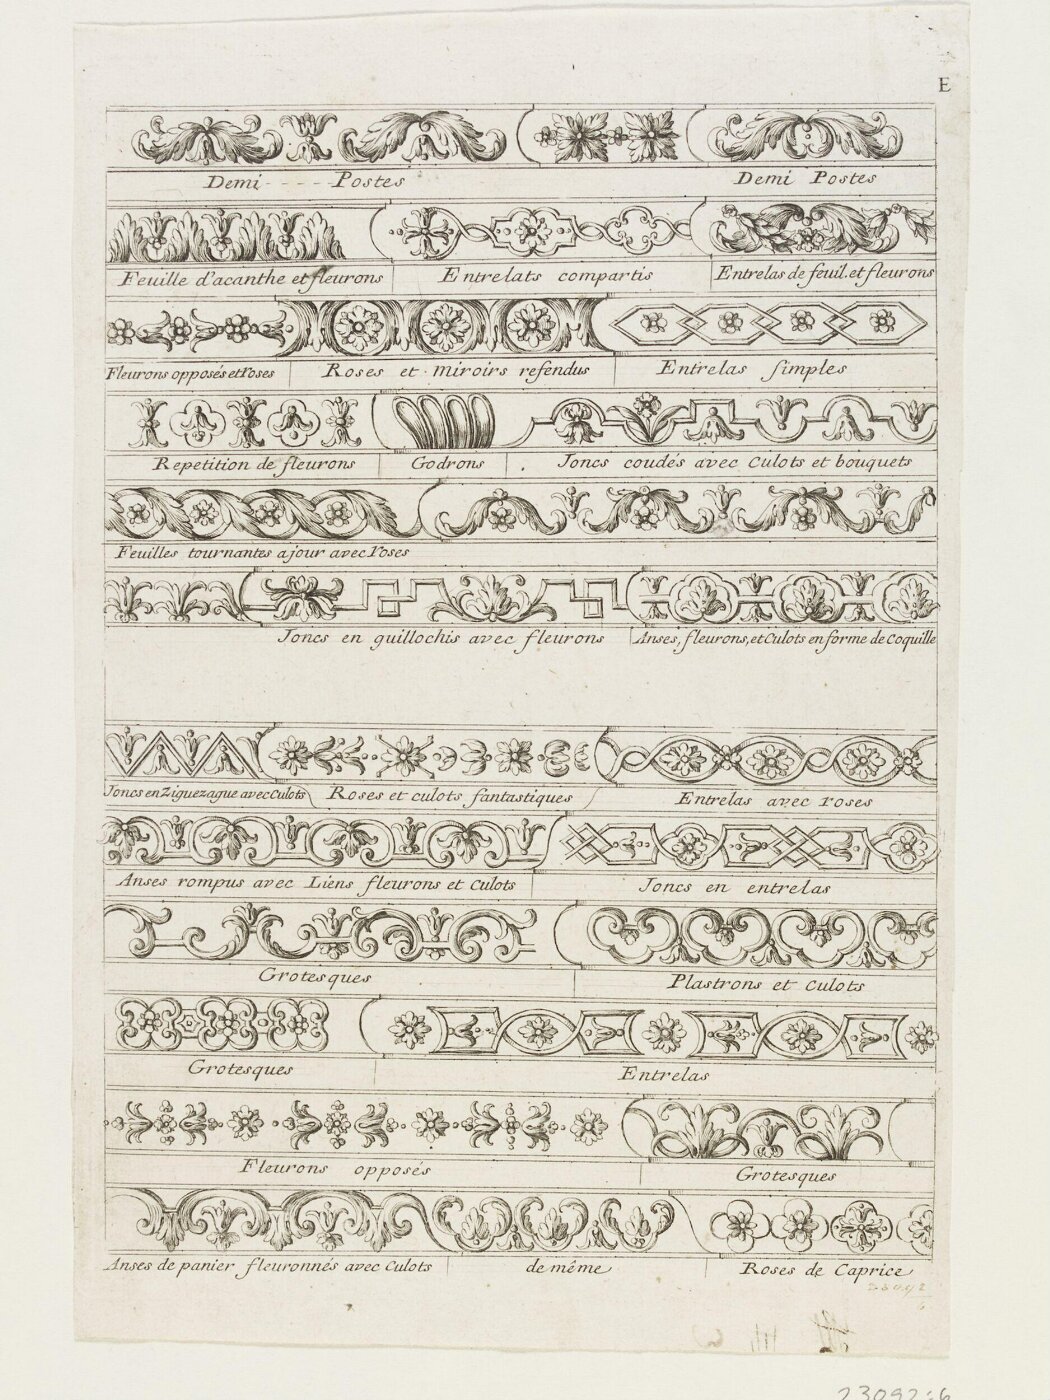 E
Demi - - - - Postes Demi Postes
Feuille d'acanthe et fleurons Entrelats compartis Entrelas de feuil. et fleurons
Fleurons opposés et roses Roses et miroirs refendus Entrelas simples
Repetition de fleurons Godrons Joncs coudés avec culots et bouquets
Feuilles tournantes ajour avec roses
Joncs en guillochis avec fleurons Anses, fleurons, et Culots en forme de Coquille
Joncs en Ziguezague avec Culots Roses et culots fantastiques Entrelas avec roses
Anses rompus avec Liens fleurons et Culots Joncs en entrelas
Grotesques Plastrons et Culots
Grotesques Entrelas
Fleurons opposés Grotesques
Anses de panier fleuronnés avec Culots de même Roses de Caprice
23092
6
23092:6